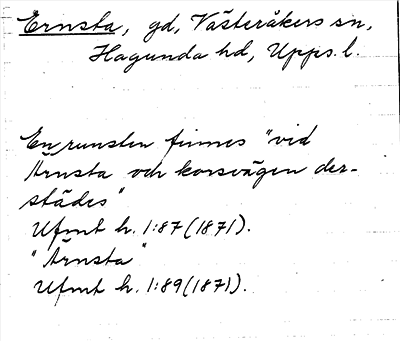 Ernsta, gd, Västeråkers sn,
Hagunda hd, Upps. l.
En runsten finnes "vid
Ärnsta och korsvägen der-
städes"
Ufmt h. 1:87 (1871).
"Ärnsta"
Ufmt h. 1:89 (1871).